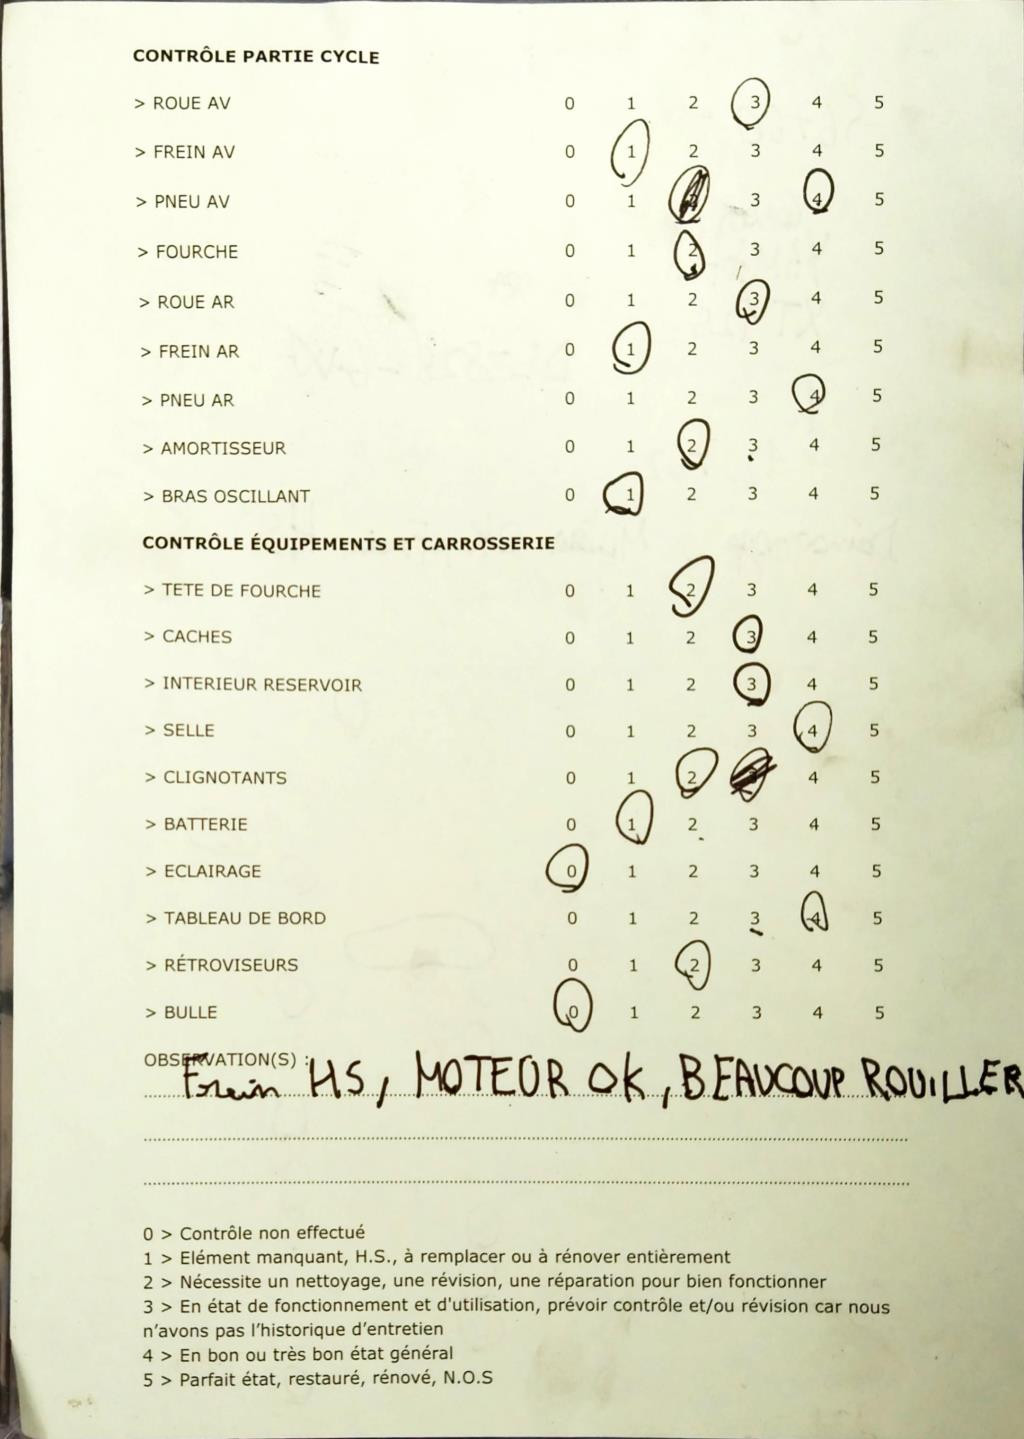 CONTRÔLE PARTIE CYCLE
> ROUE AV 0 1 2 3 4 5
> FREIN AV 0 1 2 3 4 5
> PNEU AV 0 1 2 3 4 5
> FOURCHE 0 1 2 3 4 5
> ROUE AR 0 1 2 3 4 5
> FREIN AR 0 1 2 3 4 5
> PNEU AR 0 1 2 3 4 5
> AMORTISSEUR 0 1 2 3 4 5
> BRAS OSCILLANT 0 1 2 3 4 5
CONTRÔLE ÉQUIPEMENTS ET CARROSSERIE
> TETE DE FOURCHE 0 1 2 3 4 5
> CACHES 0 1 2 3 4 5
> INTERIEUR RESERVOIR 0 1 2 3 4 5
> SELLE 0 1 2 3 4 5
> CLIGNOTANTS 0 1 2 3 4 5
> BATTERIE 0 1 2 3 4 5
> ECLAIRAGE 0 1 2 3 4 5
> TABLEAU DE BORD 0 1 2 3 4 5
> RÉTROVISEURS 0 1 2 3 4 5
> BULLE 0 1 2 3 4 5
OBSERVATION(S) :
Frein HS, MOTEUR OK, BEAUCOUP ROUILLER
0 > Contrôle non effectué
1 > Elément manquant, H.S., à remplacer ou à rénover entièrement
2 > Nécessite un nettoyage, une révision, une réparation pour bien fonctionner
3 > En état de fonctionnement et d'utilisation, prévoir contrôle et/ou révision car nous
n'avons pas l'historique d'entretien
4 > En bon ou très bon état général
5 > Parfait état, restauré, rénové, N.O.S